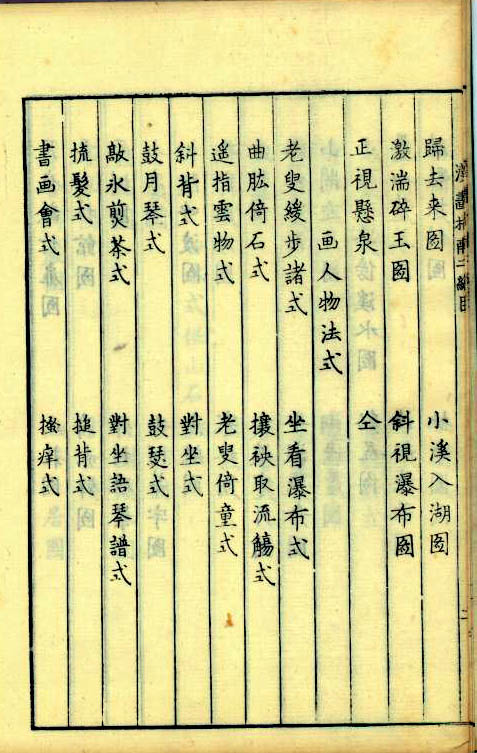 歸去来圖 小溪入湖圖
激湍碎玉圖 斜視瀑布圖
正視懸泉 仝
画人物法式
老叟緩步諸式 坐看瀑布式
曲肱倚石式 攘袂取流觴式
遥指雲物式 老叟倚童式
斜背式 對坐式
鼓月琴式 鼓瑟式
敲氷煎茶式 對坐語琴譜式
梳髮式 搥背式
書画會式 搔痒式